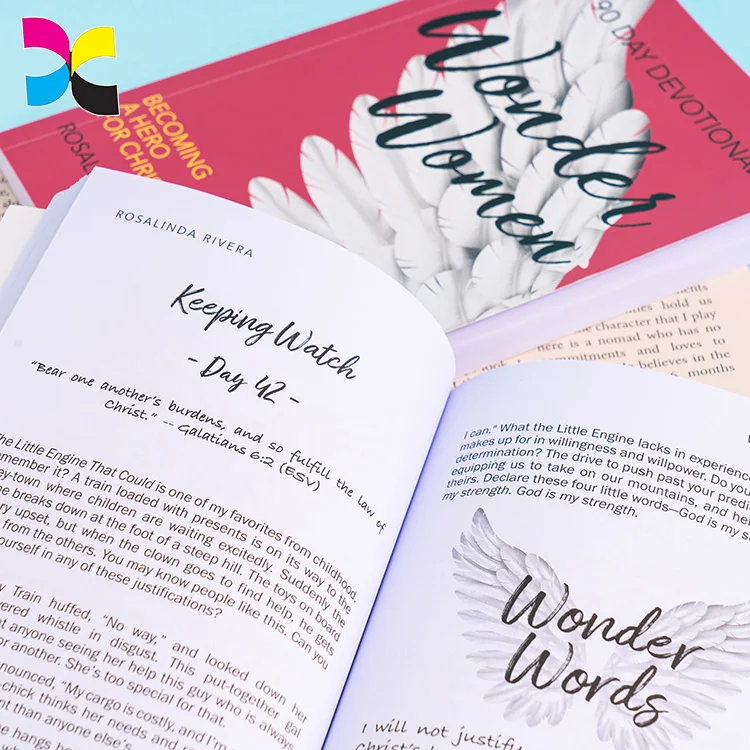 BECOMING
A HERO
FOR CHRI
ROSAL
Wonder
Women
90 DAY DEVOTIONAL
ROSALINDA RIVERA
Keeping Watch
- Day 42 -
"Bear one another's burdens, and so fulfill the law of
Christ." -- Galatians 6:2 (ESV)
The Little Engine That Could is one of my favorites from childhood.
member it? A train loaded with presents is on its way to the
ey-town where children are waiting excitedly. Suddenly the
e breaks down at the foot of a steep hill. The toys on board
ry upset, but when the clown goes to find help, he gets
from the others. You may know people like this. Can you
ourself in any of these justifications?
y Train huffed, "No way," and looked down her
vered whistle in disgust. This put-together gal
t anyone seeing her help this guy who is always
or another. She's too special for that.
nounced, "My cargo is costly, and I'm
-chick thinks her needs and
nt than anyone else's.
e hangs
I can." What the Little Engine lacks in experience
makes up for in willingness and willpower. Do you
determination? The drive to push past your predi
equipping us to take on our mountains, and hel
theirs. Declare these four little words—God is my s
my strength. God is my strength.
Wonder
Words
I will not justify
Christ's
ments
holds us
character that I play
here is a nomad who has no
commitments and loves to
believes in the
months